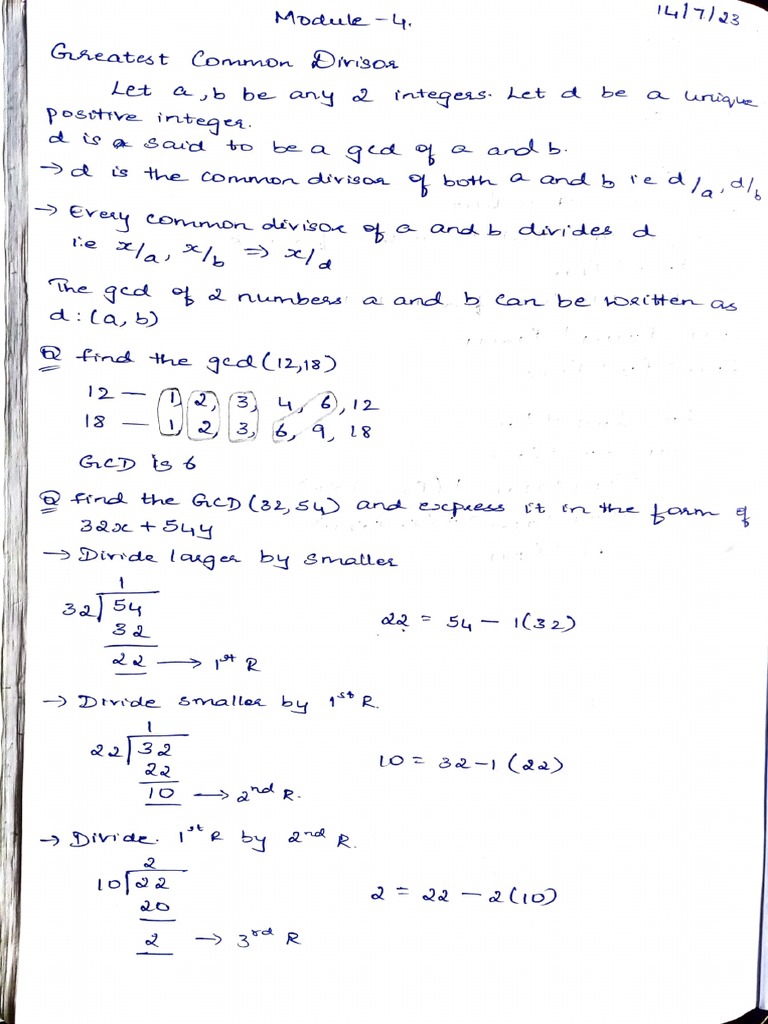 Module - 4.
14/7/23
Greatest Common Divisor
Let a, b be any 2 integers. Let d be a unique
positive integer.
d is said to be a gcd of a and b.
→ d is the common divisor of both a and b i.e d/a, d/b
→ Every common divisor of a and b divides d
i.e x/a, x/b ⇒ x/d
The gcd of 2 numbers a and b can be written as
d : (a, b)
Q find the gcd (12,18)
12 — 1, 2, 3, 4, 6, 12
18 — 1, 2, 3, 6, 9, 18
GCD is 6
Q find the GCD (32,54) and express it in the form of
32x + 54y
→ Divide larger by smaller
1
32) 54
32
22 → 1st R
22 = 54 - 1(32)
→ Divide smaller by 1st R.
1
22) 32
22
10 → 2nd R.
10 = 32 - 1 (22)
→ Divide. 1st R by 2nd R.
2
10) 22
20
2 → 3rd R
2 = 22 - 2(10)